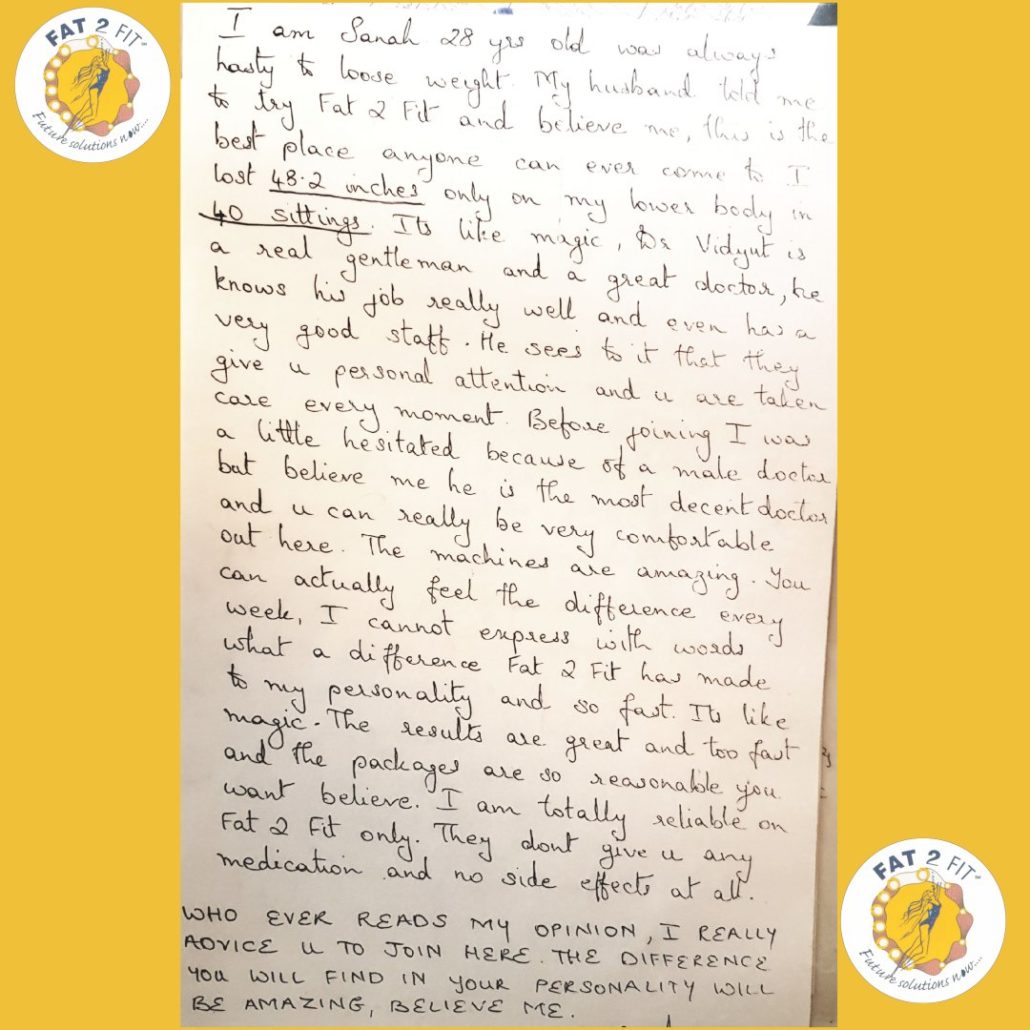 FAT 2 FIT
Future solutions now....
I am Sanah 28 yrs old was always
hasty to loose weight. My husband told me
to try Fat 2 Fit and believe me, this is the
best place anyone can ever come to I
lost 48.2 inches only on my lower body in
40 sittings. Its like magic, Dr Vidyut is
a real gentleman and a great doctor, he
knows his job really well and even has a
very good staff. He sees to it that they
give u personal attention and u are taken
care every moment. Before joining I was
a little hesitated because of a male doctor
but believe me he is the most decent doctor
and u can really be very comfortable
out here. The machines are amazing. You
can actually feel the difference every
week, I cannot express with words
what a difference Fat 2 Fit has made
to my personality and so fast. Its like
magic. The results are great and too fast
and the packages are so reasonable you
want believe. I am totally reliable on
Fat 2 Fit only. They dont give u any
medication and no side effects at all.
WHO EVER READS MY OPINION, I REALLY
ADVICE U TO JOIN HERE. THE DIFFERENCE
YOU WILL FIND IN YOUR PERSONALITY WILL
BE AMAZING, BELIEVE ME.
FAT 2 FIT
Future solutions now....